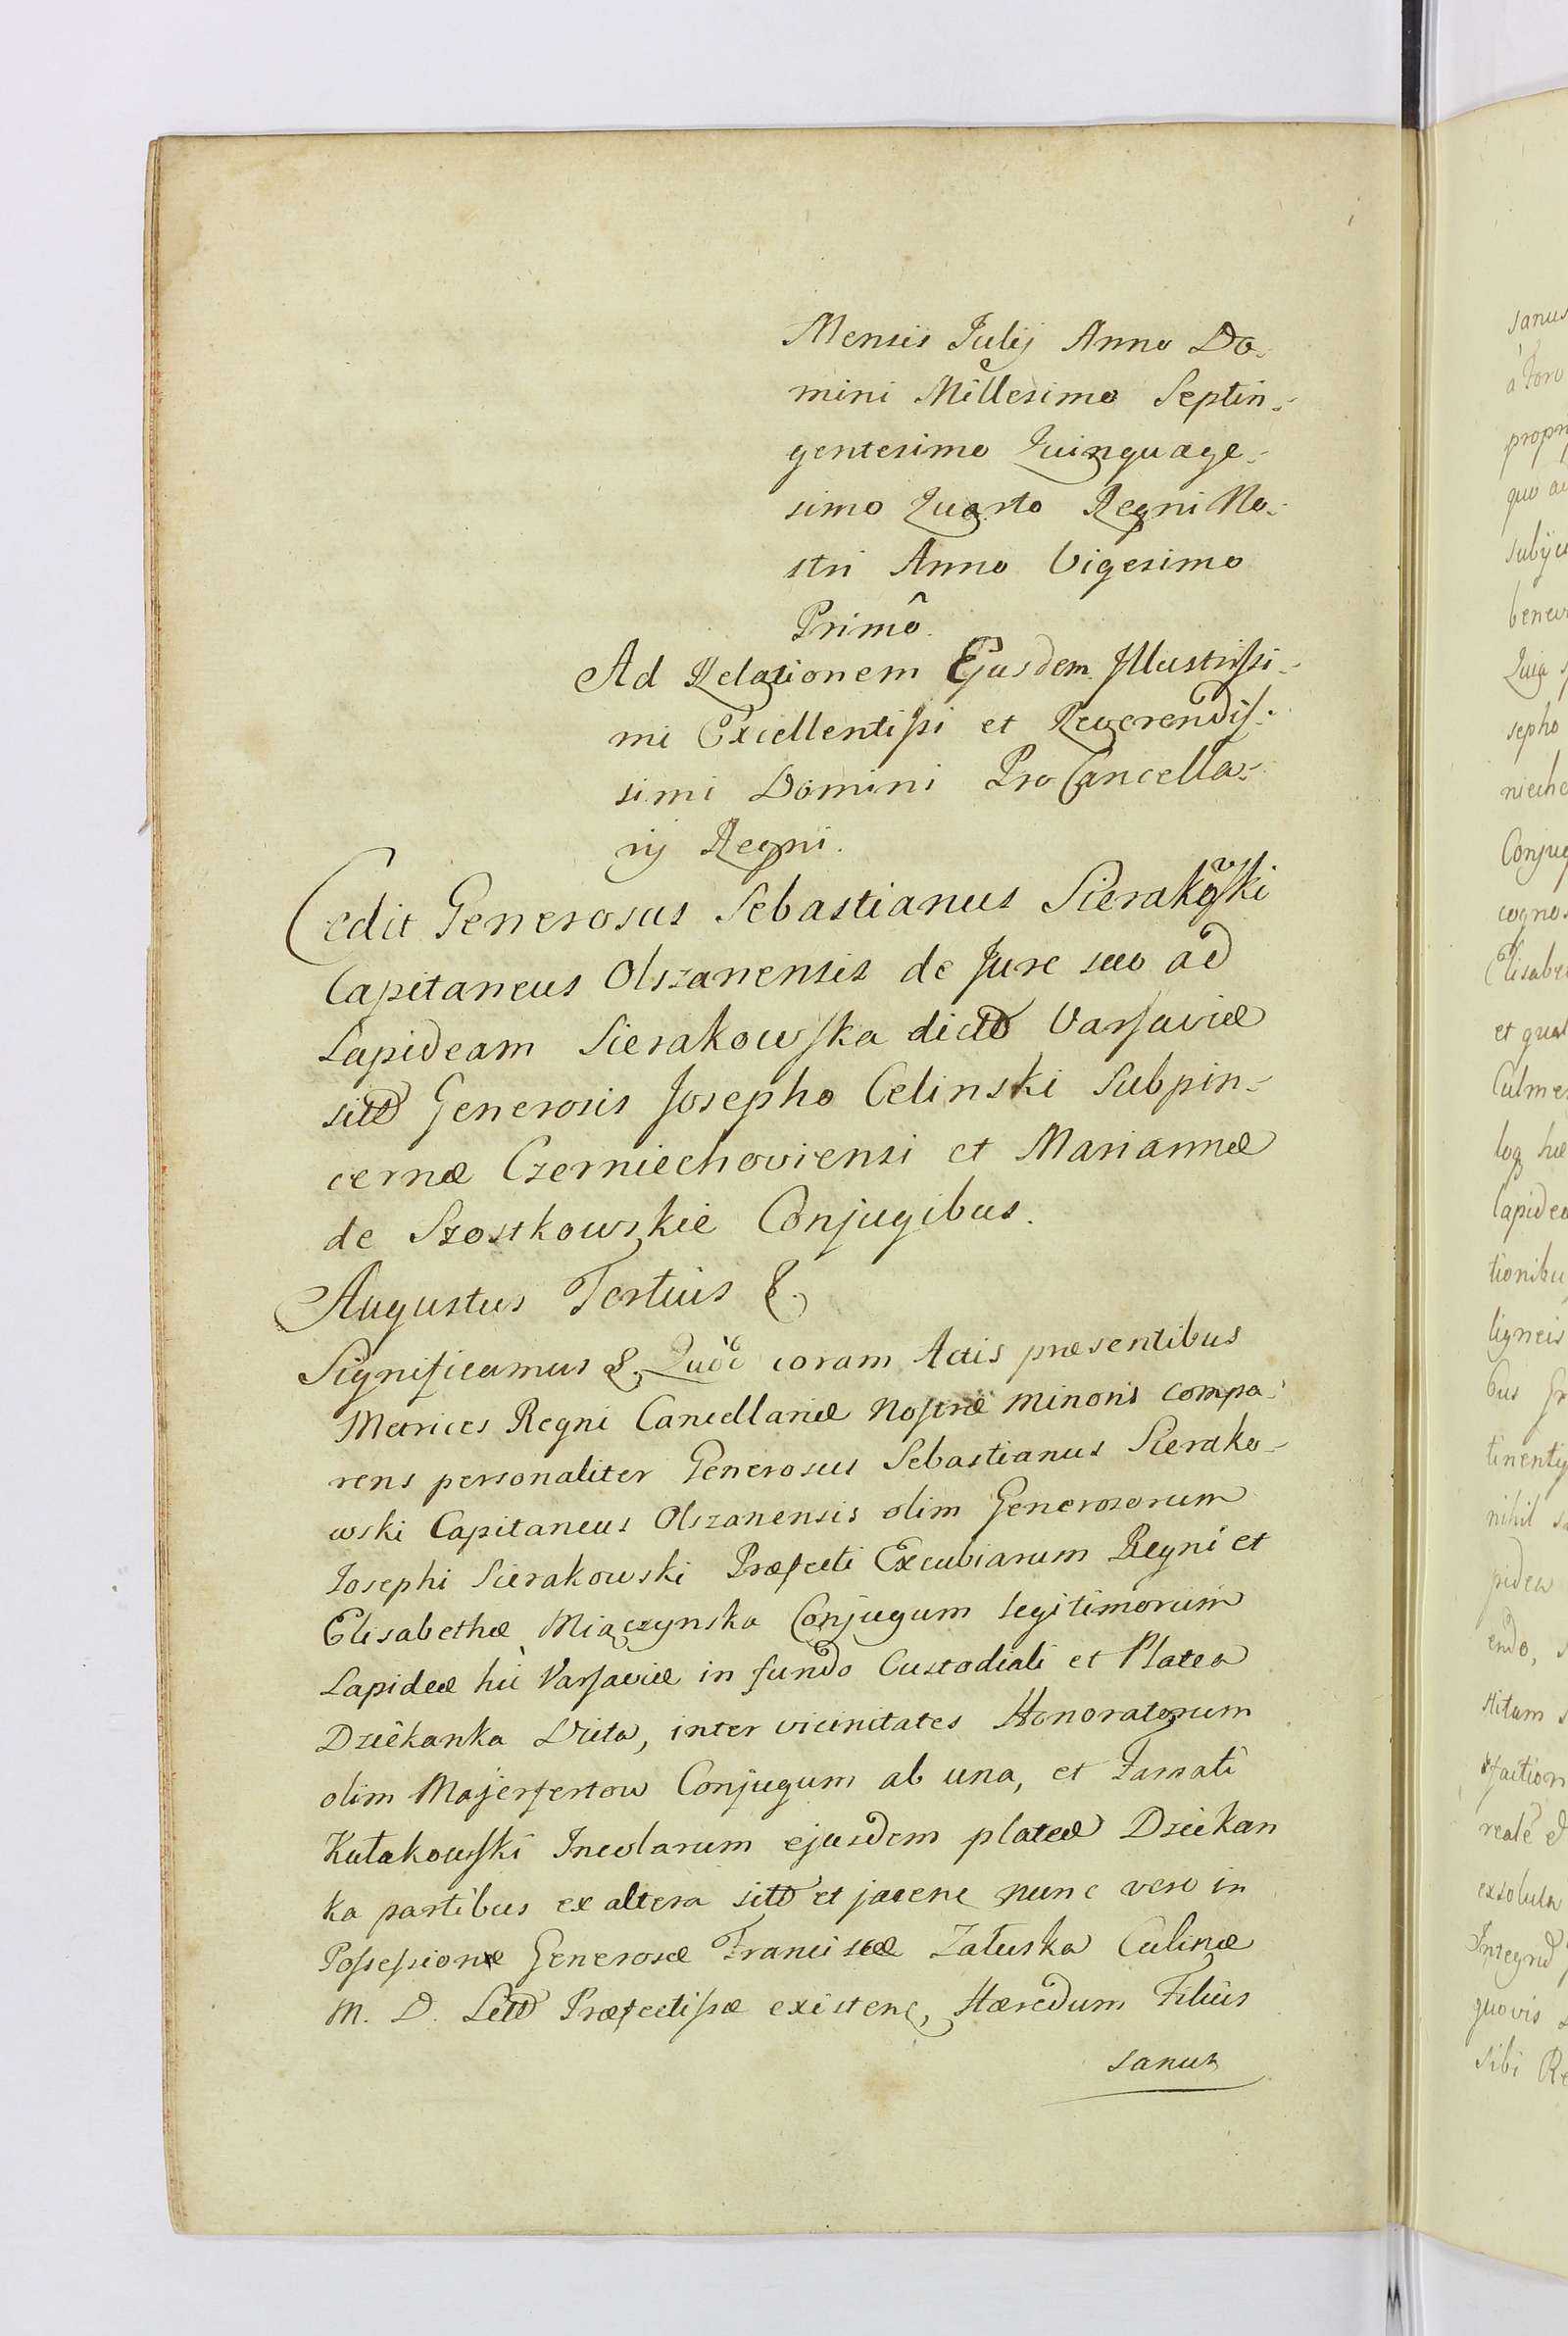 Mensis Julij Anno Do-
mini Millesimo Septin-
gentesimo Quinquage-
simo Quarto Regni No-
stri Anno Vigesimo
Primô.
Ad Relationem Ejusdem Illustrissi-
mi Excellentissi et Reverendis-
simi Domini ProCancella-
rij Regni.
Cedit Generosus Sebastianus Sierakowski
Capitaneus Olszanensis de Jure suo ad
Lapideam Sierakowska dictã Varsaviæ
sitã Generosis Josepho Celinski Subpin-
cernæ Czerniechoviensi et Mariannæ
de Szostkowskie Conjugibus.
Augustus Tertius &.
Significamus &. Quòd coram Actis præsentibus
Metrices Regni Cancellariæ Nostræ minoris compa-
rens personaliter Generosus Sebastianus Sierako-
wski Capitaneus Olszanensis olim Generosorum
Josephi Sierakowski Præfecti Excubiarum Regni et
Elisabethæ Miączynska Conjugum legitimorum
Lapideæ hic Varsaviæ in fundo Custodiali et Platea
Dziekanka dicta, inter vicinitates Honoratorum
olim Majerfertow Conjugum ab una, et Famati
Kułakowski Incolarum ejusdem plateæ Dziekan
ka partibus ex altera sitæ et jacene nunc vero in
Possessione Generosæ Franciscæ Załuska Culinæ
M. D. Litt Præfectissæ existen, Hæredum Filius
sanus
sanus
à Toro
quo
sepho
Conjug
et
Lapidea
tionibu
ligneis
nihil
endo,
exsoluta
quovis
sibi Re